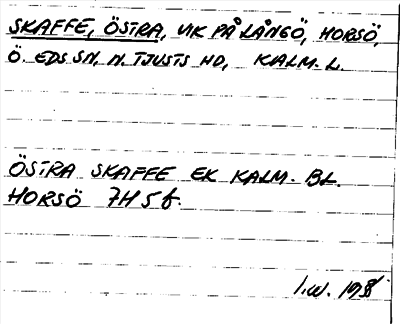 SKAFFE, ÖSTRA, VIK PÅ LÅNGÖ, HORSÖ,
Ö. EDS SN. N. TJUSTS HD, KALM. L.
ÖSTRA SKAFFE EK KALM. BL.
HORSÖ 7H 5f.
I.W.